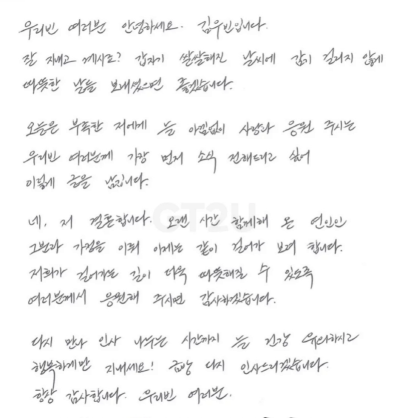 우리빈 여러분 안녕하세요. 김우빈입니다.
잘 지내고 계시죠? 갑자기 쌀쌀해진 날씨에 감기 걸리지 않게
따뜻한 날들 보내셨으면 좋겠습니다.
오늘은 부족한 저에게 늘 아낌없이 사랑과 응원 주시는
우리빈 여러분께 가장 먼저 소식 전해드리고 싶어
이렇게 글을 남깁니다.
네, 저 결혼합니다. 오랜 시간 함께해 온 연인인
그분과 가정을 이뤄 이제는 같이 걸어가 보려 합니다.
저희가 걸어가는 길이 더욱 따뜻해질 수 있도록
여러분께서 응원해 주시면 감사하겠습니다.
다시 만나 인사 나누는 시간까지 늘 건강 유의하시고
행복하게만 지내세요! 금방 다시 인사드리겠습니다.
항상 감사합니다. 우리빈 여러분.
GT2U